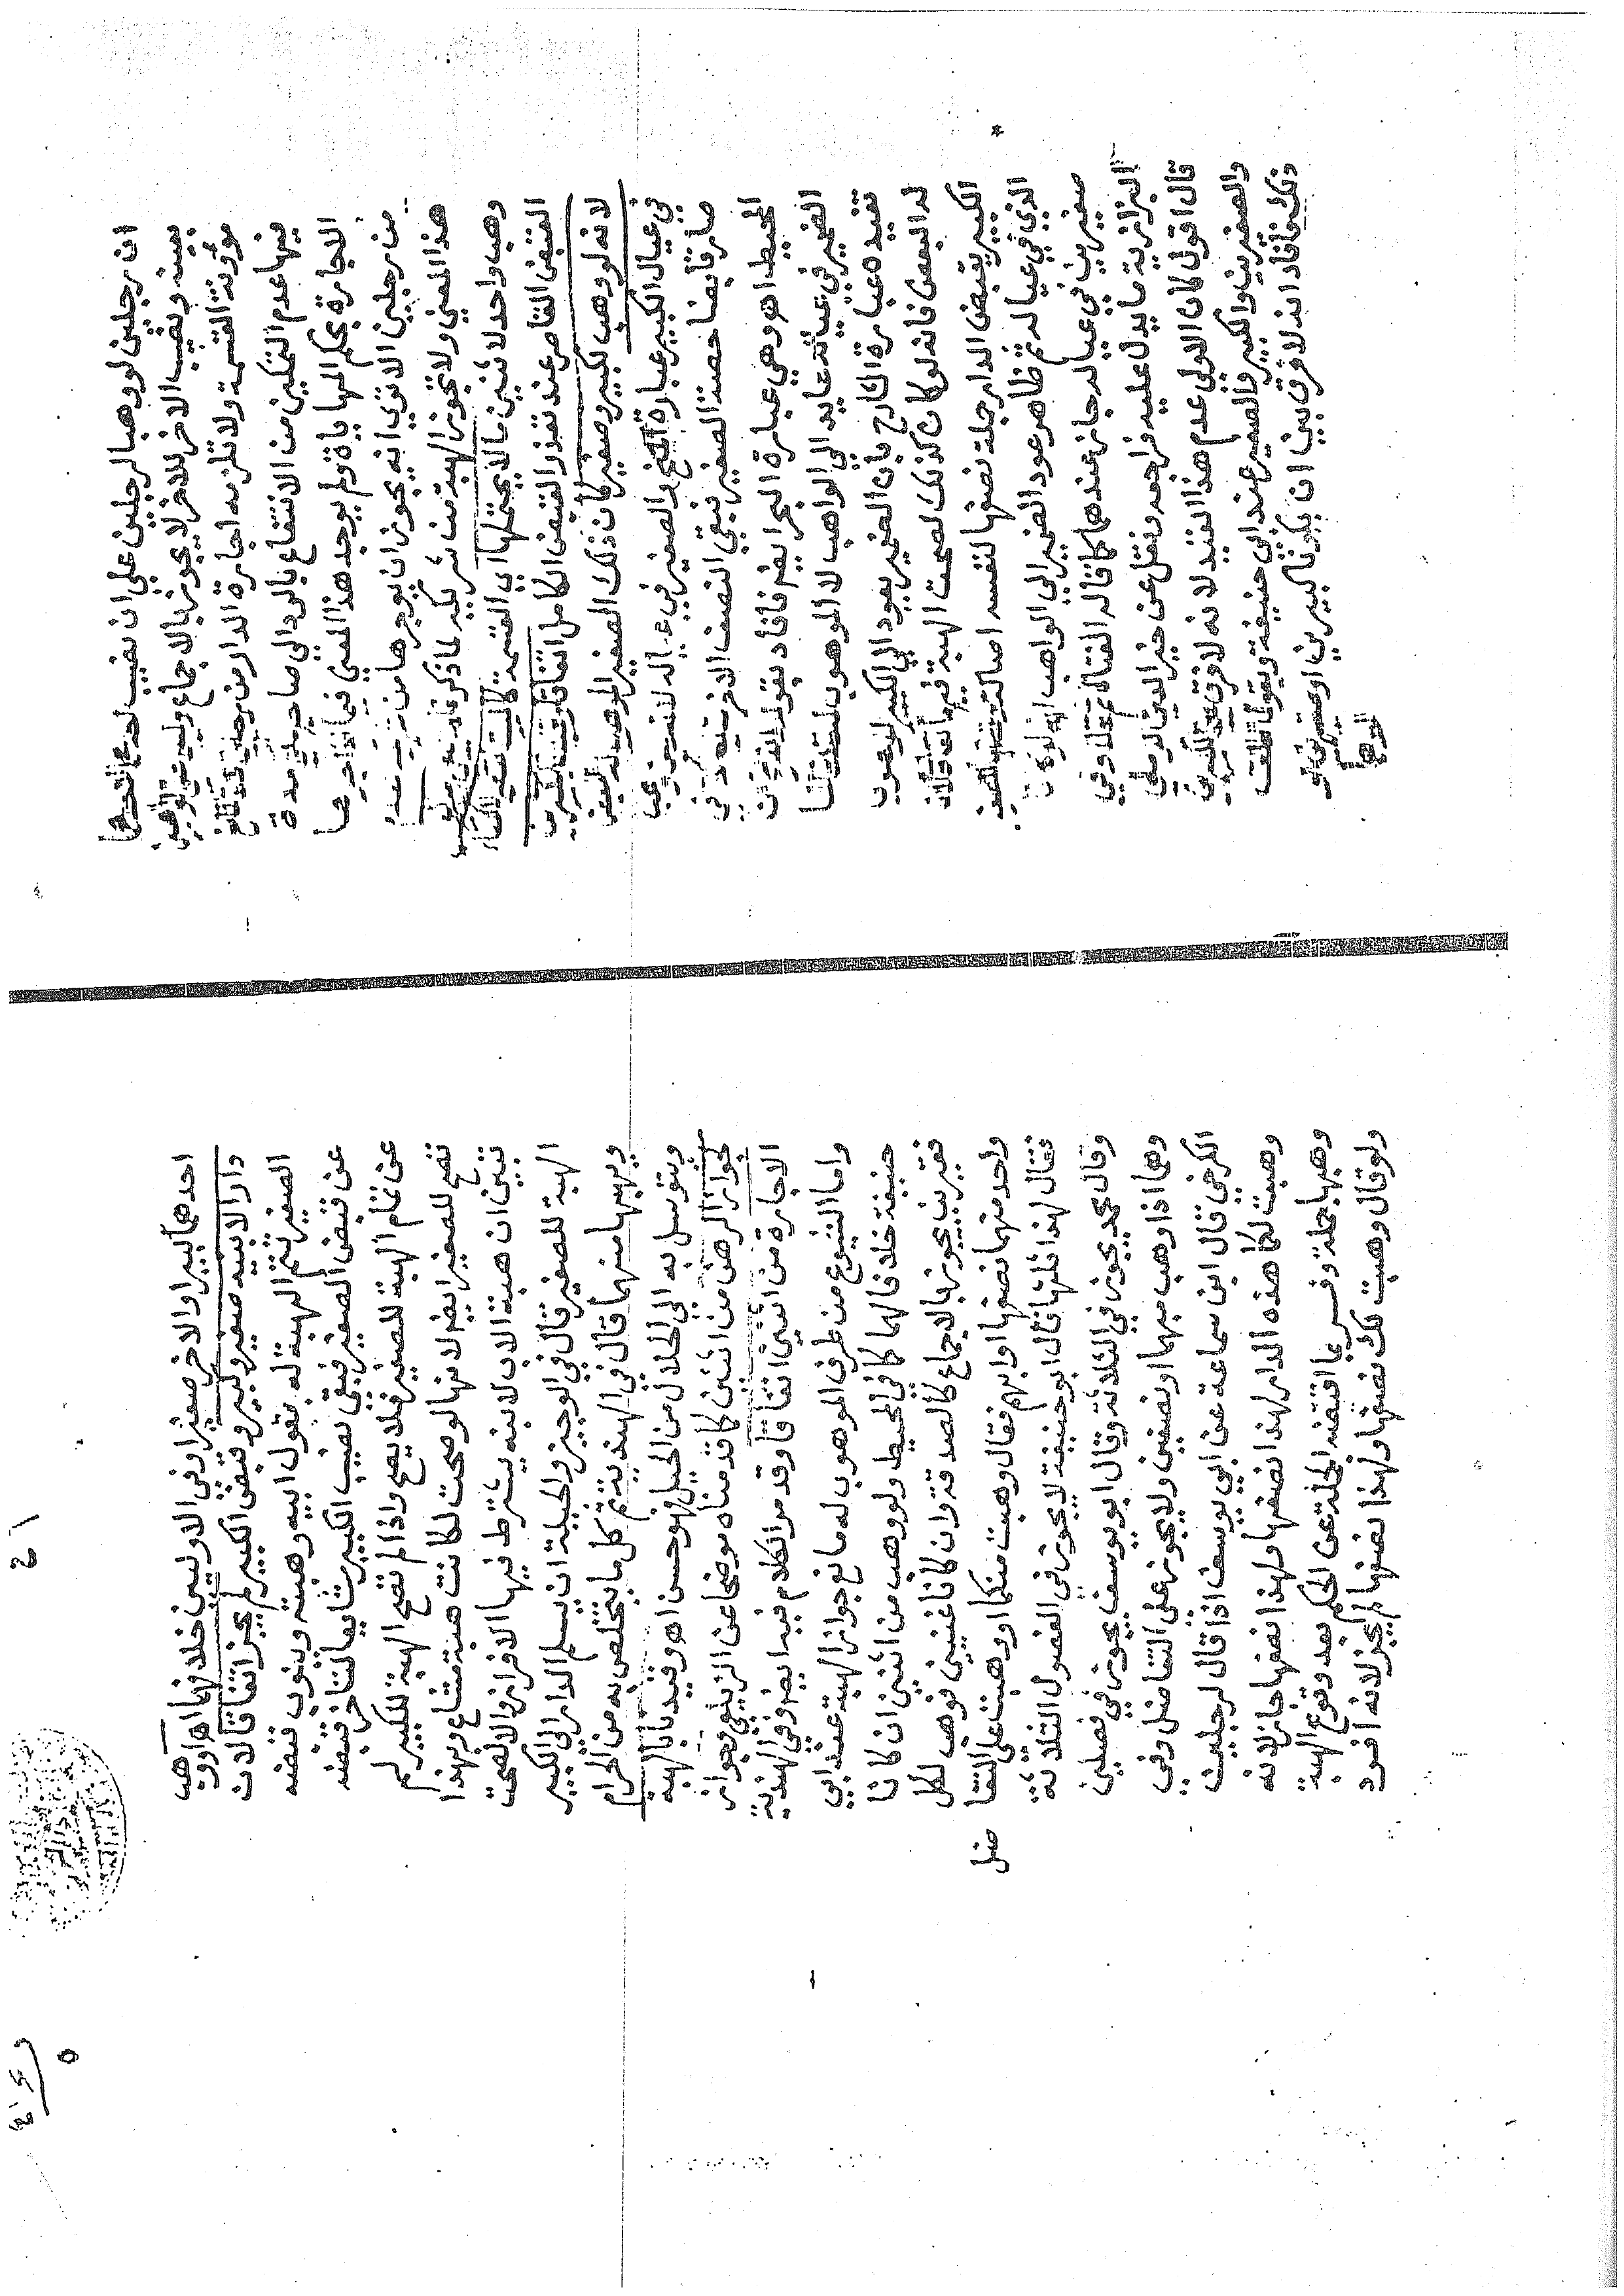 ان رجلين لو وهبا لرجلين على ان نصيب احدهما لاحدهما
بعينه ونصيب الاخر للاخر لا يجوز بالاجماع
مؤونة القسمة ولا تلزمه اجارة الدار من رجلين
فيها عدم التمكين من الانتفاع بالى دالى صاحبه مدة
الاجارة بحكم المهاياة ولم يوجد هذا المعنى فيما اذا اجرها
من رجلين الا ترى انه يجوز ان يوجرها من
هذا المعنى ولا تجوز الهبة من شريكه لما ذكرنا
وهب واحد لاثنين ما لا يحتملها اي القسمة كالبيت
القبض القاصر عند تعذر القبض الكامل اتفاقا
لانه لو وهب لكبير وصغير كان ذلك الصغير الموهوب له
في عيال الكبير عبارة المنح والصغير في عياله لانه حين وهب
صار قابضا حصة الصغير فبقي النصف الاخر
المحيط اهـ وهي عبارة البحر ايضا فافاد بقوله
الضمير في عياله عايد الى الواهب لا الموهوب له
تفيده عبارة الشارح بان الضمير يعود الى الكبير لا صوب
له البعض فانه لو كان كذلك لصحت الهبة
الكبير يقبض الدار جملة نصفها لنفسه اصالة
الذي في عياله ثم ظاهر عود الضمير الى الواهب انه لو كان
صغيرين في عياله جاز عندهما كما قاله
البزازية ما يدل عليه فراجعه ونقل عن خير الدين الرملي
قال اقول كان الاولى عدم هذا القيد لانه لا فرق بين الكبيرين
والصغيرين والكبير والصغير عند ابي حنيفة ويقول اطلق
ذلك فافاد انه لا فرق بين ان يكونا كبيرين او صغيرين او
احدهما
احدهما كبيرا والاخر صغيرا وفي الاوليين خلافهما اهـ او وهب
دارا لابنيه صغير وكبير وقبض الكبير لم يجز اتفاقا لان
الصغير تتم الهبة له بقول ابيه وهبته وينوب قبضه
عن قبض الصغير فبقي نصيب الكبير شايعا لتاخر قبضه
عن تمام الهبة للصغير فلا يصح واذا لم تصح الهبة للكبير لم
تصح للصغير ايضا لانها لو صحت لكانت هبة مشاع وبهذا
تبين ان هبة الاب لابنه يشترط فيها الافراز والا لصحت
الهبة للصغير قال في الوجيز والحيلة ان يسلم الدار الى الكبير
ويهبها منهما قال في الهندية ثم كل ما يتخلص به من الحرام
ويتوسل به الى الحلال من الحيل فهو حسن اهـ وقيد بالهبة
لجواز الرهن من اثنين كما قدمناه موضحا عن الزيلعي وبجواز
الاجارة من اثنين اتفاقا وقد مر الكلام فيه ايضا وفي الهندية
واما الشيوع من طرف الموهوب له مانع جواز الهبة عند ابي
حنيفة خلافا لهما كما في المحيط ولو وهب من اثنين ان كانا
فقيرين يجوز بالاجماع كالصدقة وان كانا غنيين فوهب لكل
واحد منهما نصفها او ابهم فقال وهبت منكما او وهبت على التفا
ضل
فقال لهذا ثلثها قال ابو حنيفة لا يجوز في الفصول الثلاثة
وقال محمد يجوز في الثلاثة وقال ابو يوسف يجوز في فصلين
وهما اذا وهب مبهما او نصفين ولا يجوز على التفاضل وفي
الكرخي قال ابن سماعة عن ابي يوسف اذا قال لرجلين
وهبت لكما هذه الدار لهذا نصفها ولهذا نصفها جاز لانه
وهبها جملة وفسر بما اقتضته الجملة عن الحكم بعد وقوع الهبة
ولو قال وهبت لك نصفها ولهذا نصفها لم يجز لانه افرد